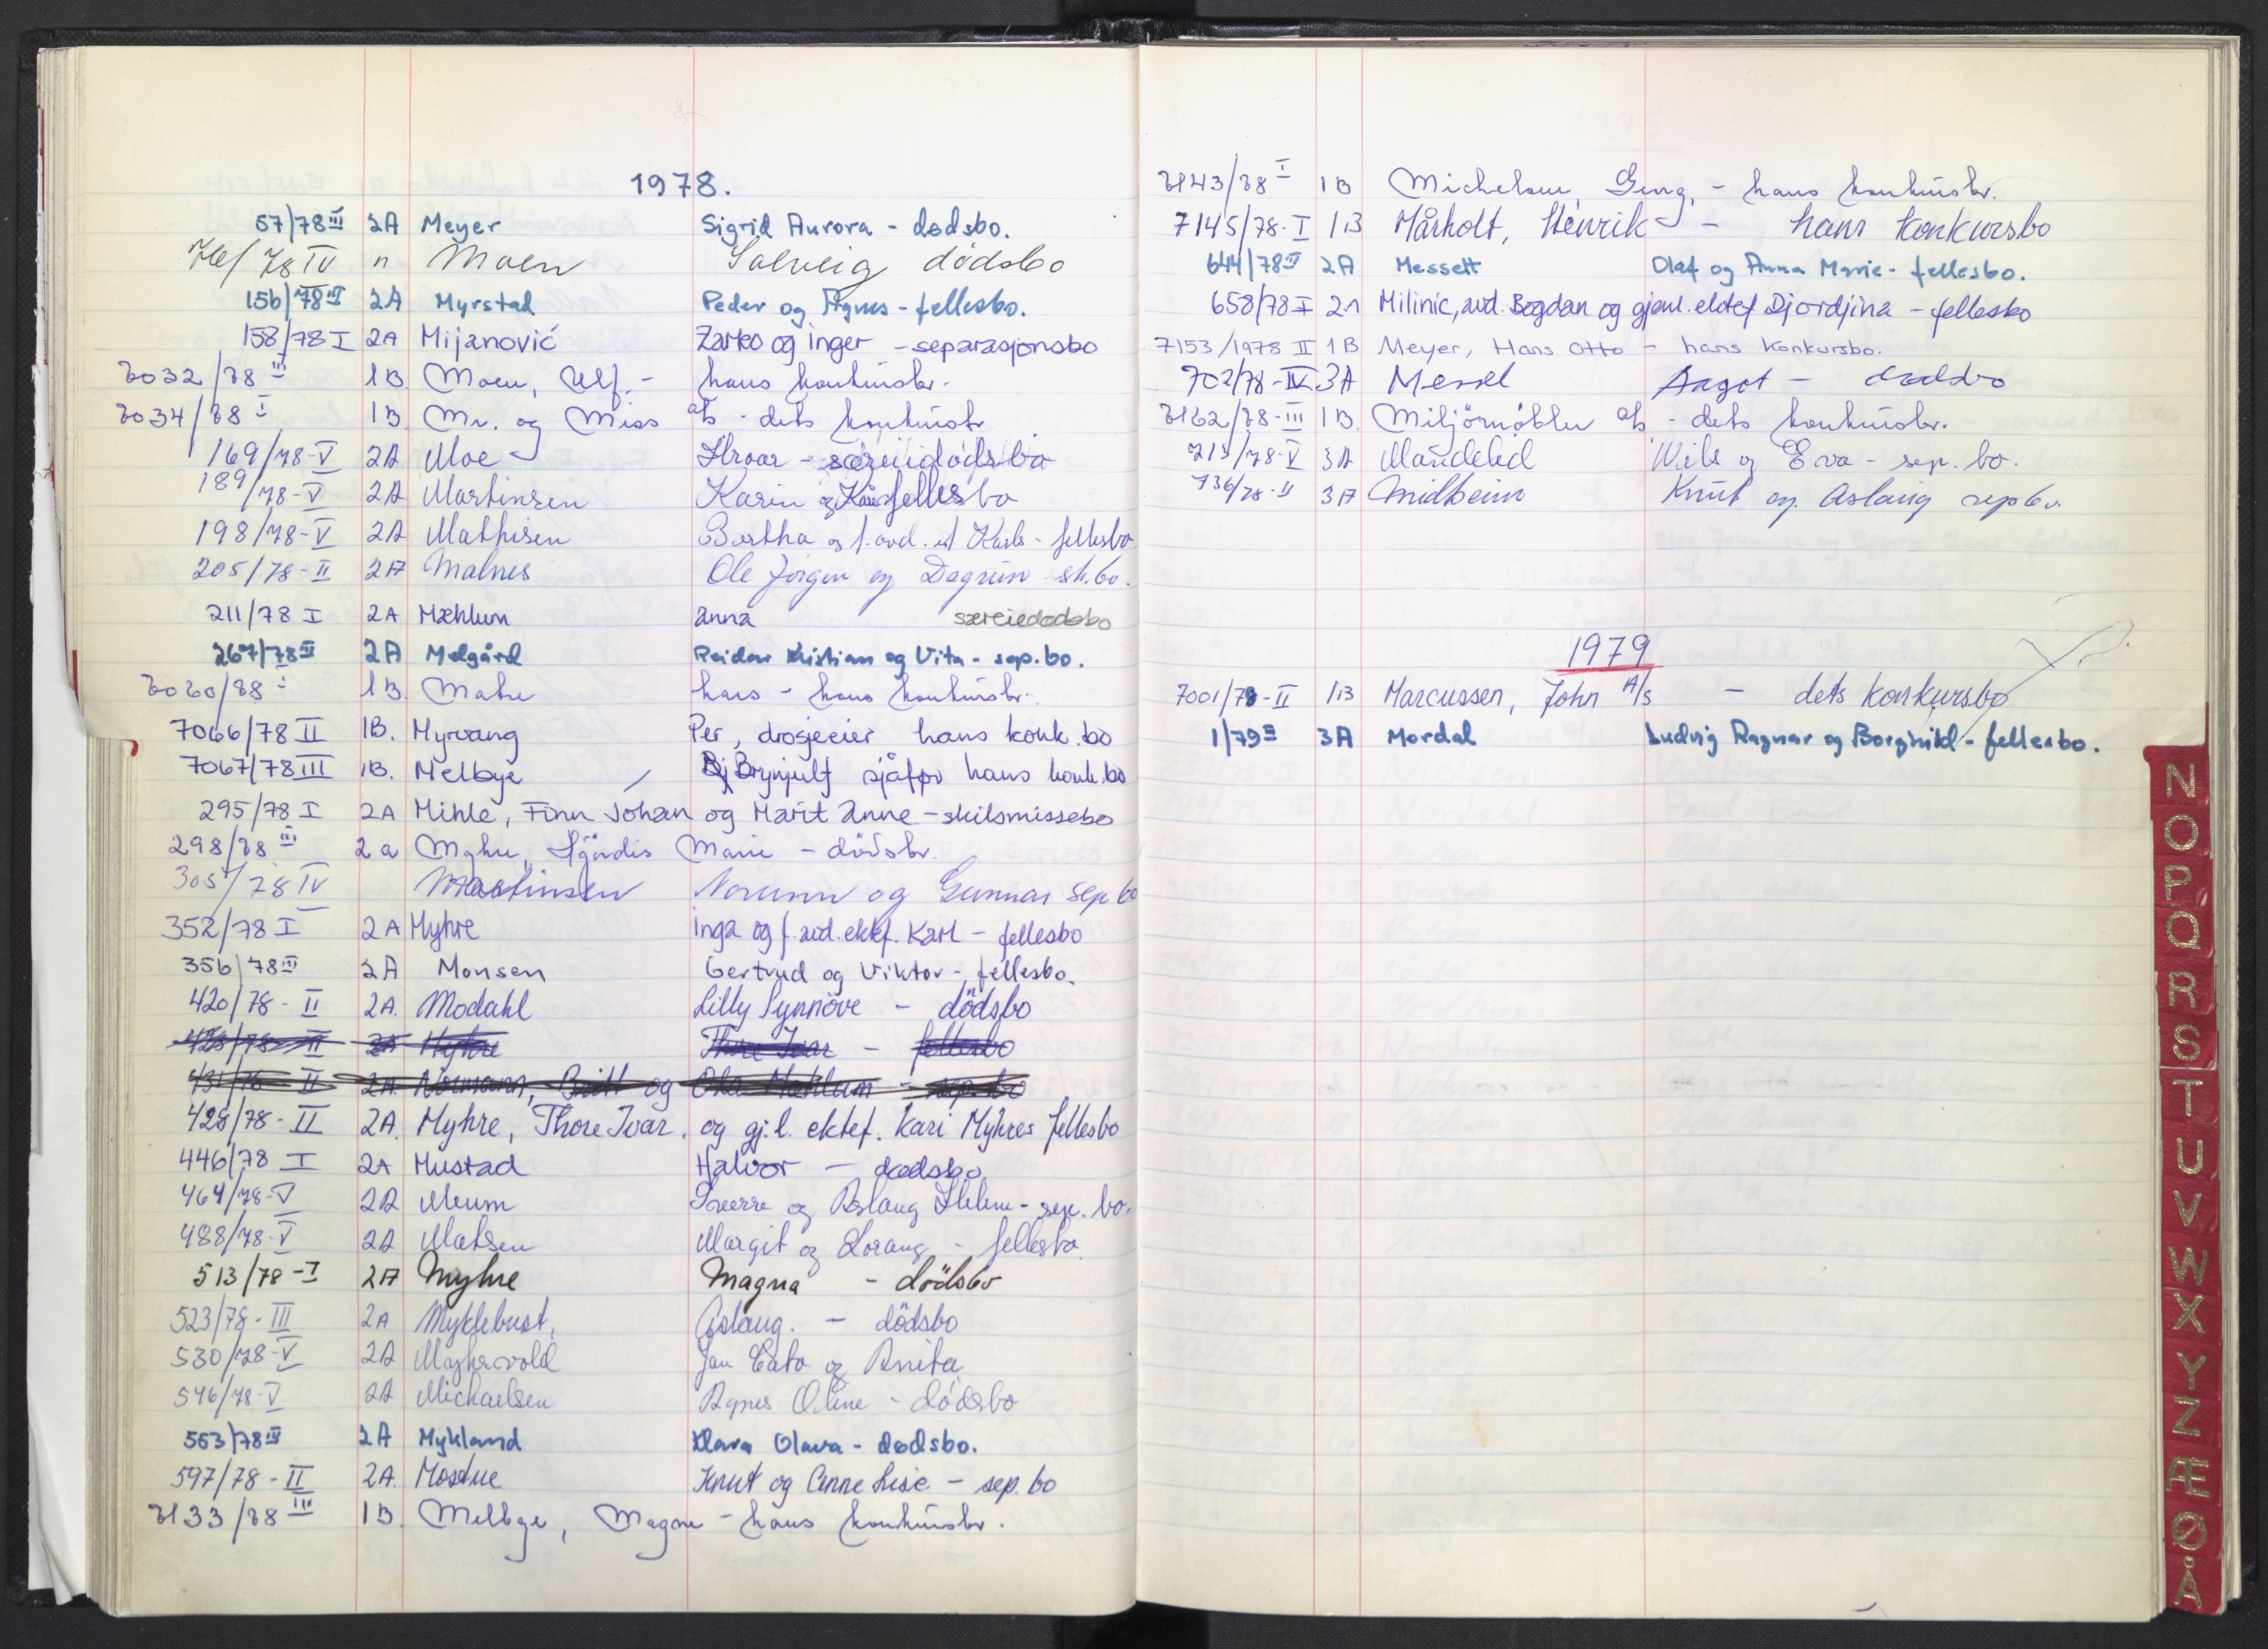 1978.
57/78 III 2A Meyer Sigrid Aurora - dødsbo.
76/78 IV " Moen Solveig dödsbo
156/78 III 2A Myrstad Peder og Agnes - fellesbo.
158/78 I 2A Mijanović Zarko og Inger - separasjonsbo
7032/78 III 1B Moen, Ulf - hans konkursbo.
7034/78 I 1B Mr. og Miss a/s - dets konkursbo
169/78-V 2A Moe Hroar - særeiedødsbo
189/78-V 2A Martinsen Karin og Kåre fellesbo
198/78-V 2A Mathisen Bertha og f. avd. ef Karls - fellesbo.
205/78-II 2A Malnes Ole Jörgen og Dagrun sk.bo.
211/78 I 2A Mæhlum Anna særeiedødsbo
267/78 III 2A Melgård Reidar Kristian og Vita - sep.bo.
7060/78 I 1B Mahn hans konkursbo.
7066/78 II 1B. Myrvang Per, drosjeeier hans konk.bo
7067/78 III 1B. Melbye Brynjulf sjåfør hans konk.bo
295/78 I 2A Mihle, Finn Johan og Marit Anne - skilsmissebo
298/78 III 2a Myhre, Hjördis Marie - dödsbo.
305/78 IV Martinsen Norunn og Gunnar sep bo
352/78 I 2A Myhre Inga og f. avd. ektef. Karl - fellesbo
356/78 III 2A Monsen Gertrud og Viktor - fellesbo.
420/78 - II 2A. Modahl Lilly Synnöve - dödsbo
428/78 - II 2A Myhre Thore Ivar - fellesbo
431/78 II 2A. Normann, Britt og Ola Mæhlum - sep.bo
428/78 - II 2A. Myhre, Thore Ivar. og gj.l. ektef. Kari Myhres fellesbo
446/78 I 2A Mustad Halvor - dødsbo
464/78-V 2A Meum Sverre og Aslaug Helene - sep. bo.
488/78-V 2A Matsen Margit og Lorang - fellesbo.
513/78 - I 2A Myhre Magna - dödsbo
523/78 - III 2A Myklebust, Aslaug. - dödsbo
530/78-V 2A Myhrvold Jan Cato og Anita
546/78-V 2A Michaelsen Agnes Oline - dödsbo
553/78 III 2A Mykland Klara Olava - dødsbo.
597/78 - II 2A. Mosdue Knut og Anne Lise - sep. bo
7133/78 III 1B. Melbye, Magne - hans konkursbo.
7143/78 I 1B Michelsen, Georg, - hans konkursbo.
7145/78 - I 1B Mårholt, Henrik - hans konkursbo
644/78 III 2A Messelt Olaf og Anna Marie - fellesbo.
658/78 I 2A Milinic, avd. Bogdan og gjenl. ektef Djordjina - fellesbo
7153/1978 II 1B Meyer, Hans Otto - hans konkursbo.
702/78 - IV 3A Messel Aagot - dødsbo
7162/78 - III 1B. Miljömöbler a/s - dets konkursbo.
713/78-V 3A Mandelid Nils og Eva - sep. bo.
736/78 - II 3A Midheim Knut og Aslaug sepbo.
1979
7001/79 - II 1B Marcussen, John A/s - dets konkursbo
1/79 III 3A Mordal Ludvig Ragnar og Borghild - fellesbo.
N
O
P
Q
R
S
T
U
V
W
X
Y
Z
Æ
Ø
Å